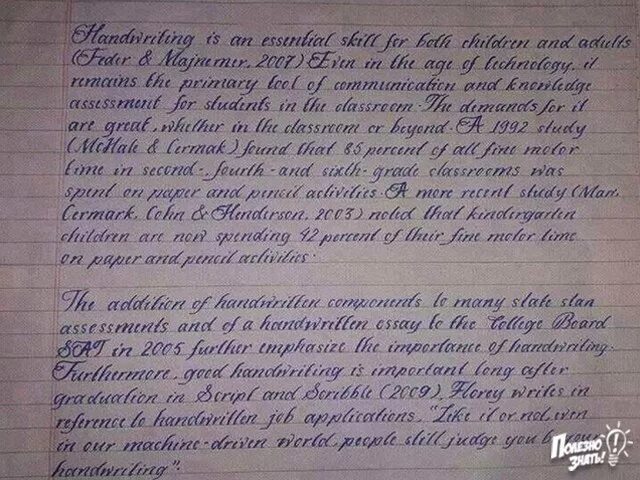 Handwriting is an essential skill for both children and adults
(Feder & Majnemer, 2007) Even in the age of technology, it
remains the primary tool of communication and knowledge
assessment for students in the classroom. The demands for it
are great, whether in the classroom or beyond. A 1992 study
(McHale & Cermak) found that 85 percent of all fine motor
time in second-, fourth- and sixth-grade classrooms was
spent on paper and pencil activities. A more recent study (Marr,
Cermark, Cohn & Henderson, 2003) noted that kindergarten
children are now spending 42 percent of their fine motor time
on paper and pencil activities.
The addition of handwritten components to many state stan
assessments and of a handwritten essay to the College Board
SAT in 2005 further emphasize the importance of handwriting.
Furthermore, good handwriting is important long after
graduation in Script and Scribble (2009), Florey writes in
reference to handwritten job applications, "Like it or not, even
in our machine-driven world, people still judge you
handwriting".
Полезно
знать!